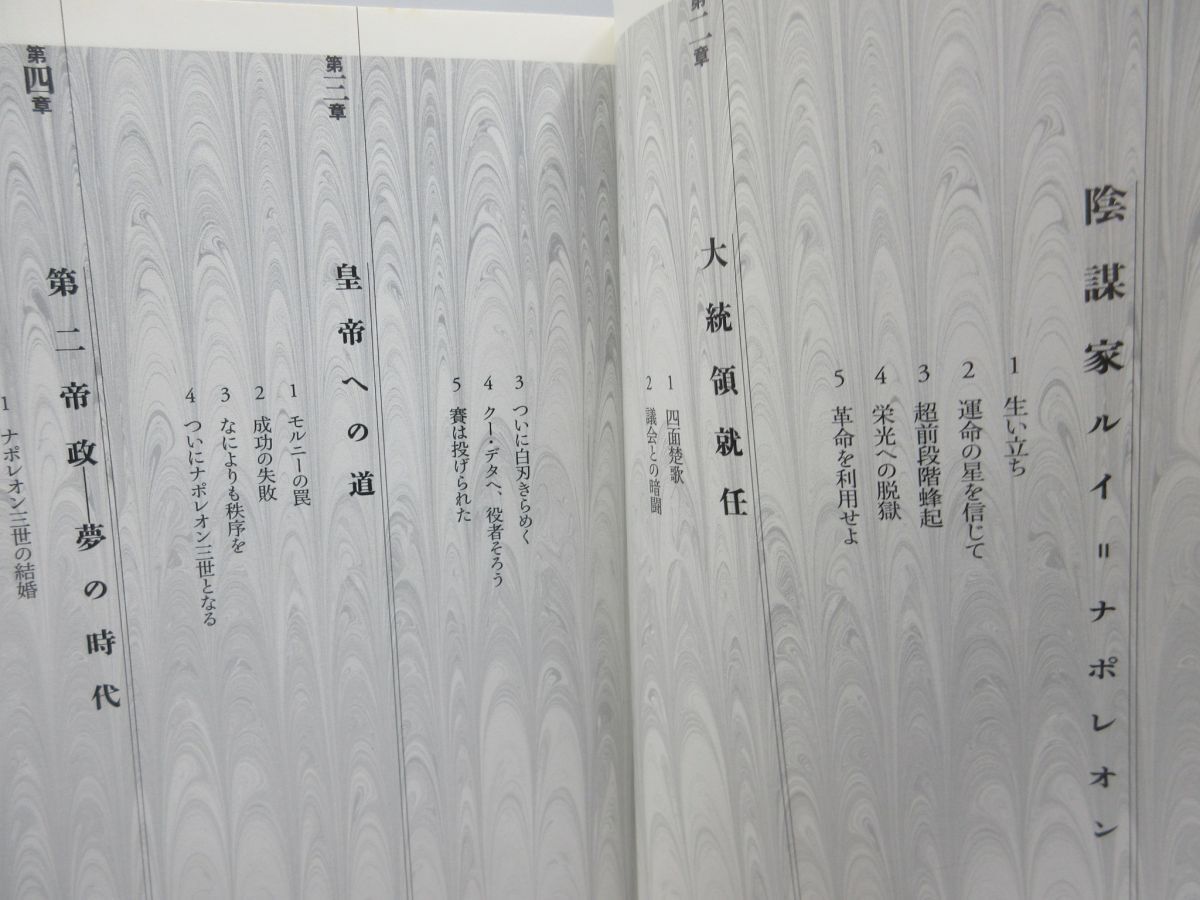 陰謀家ルイ＝ナポレオン
1 生い立ち
2 運命の星を信じて
3 超前段階蜂起
4 栄光への脱獄
5 革命を利用せよ
第二章
大統領就任
1 四面楚歌
2 議会との暗闘
3 ついに白刃きらめく
4 クー・デタへ、役者そろう
5 賽は投げられた
第三章
皇帝への道
1 モルニーの罠
2 成功の失敗
3 なによりも秩序を
4 ついにナポレオン三世となる
第四章
第二帝政——夢の時代
1 ナポレオン三世の結婚